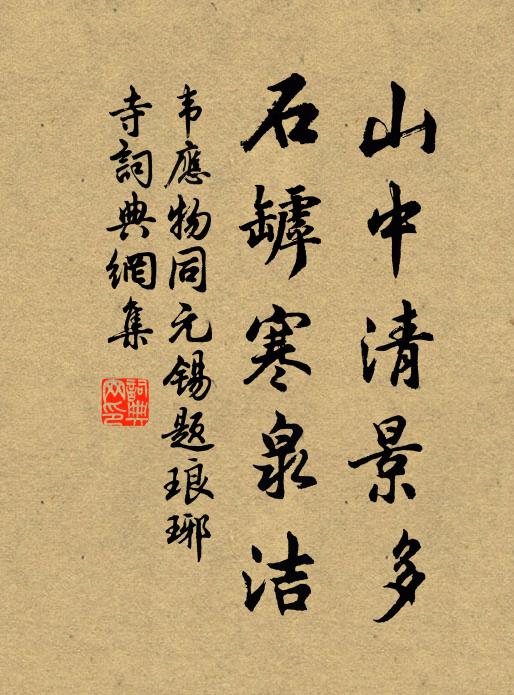 山中清景多
石罅寒泉洁
韦應物同元锡题琅琊
寺詞典網集
詞典網印